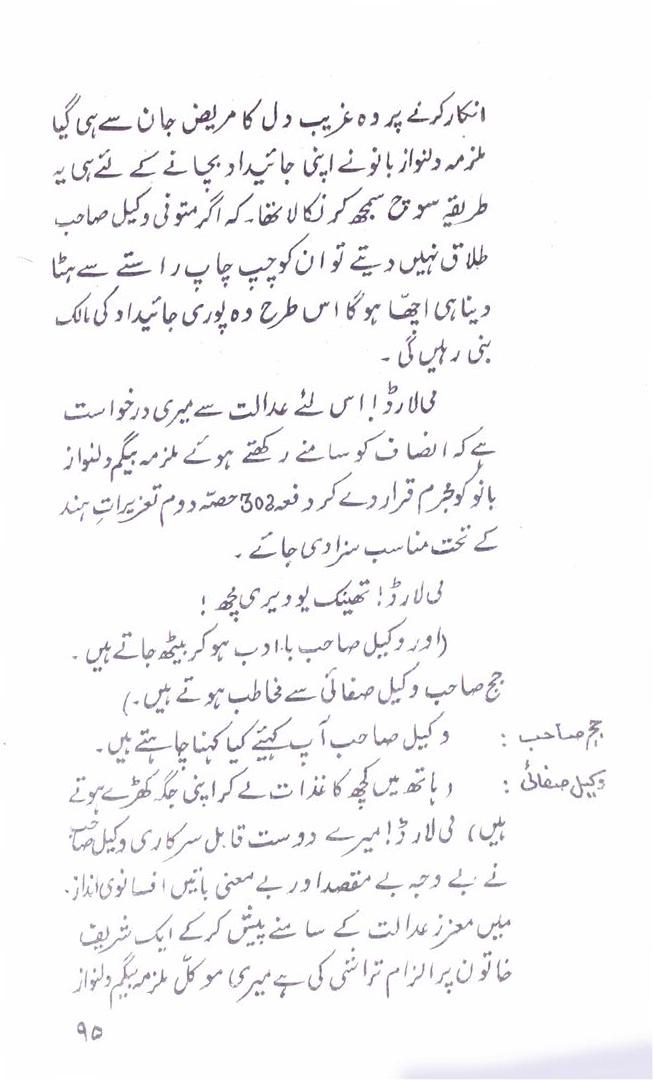 انکار کرنے پر وہ غریب دل کا مریض جان سے ہی گیا
ملزمہ دلنواز بانو نے اپنی جائیداد بچانے کے لئے ہی یہ
طریقہ سوچ سمجھ کر نکالا تھا۔ کہ اگر متوفی وکیل صاحب
طلاق نہیں دیتے تو ان کو چپ چاپ راستے سے ہٹا
دینا ہی اچھّا ہوگا اس طرح وہ پوری جائیداد کی مالک
بنی رہیں گی ۔
می لارڈ! اس لئے عدالت سے میری درخواست
ہے کہ انصاف کو سامنے رکھتے ہوئے ملزمہ بیگم دلنواز
بانو کو مجرم قرار دے کر دفعہ 302 حصّہ دوم تعزیراتِ ہند
کے تحت مناسب سزا دی جائے ۔
می لارڈ! تھینک یو ویری مچ !
(اور وکیل صاحب با ادب ہو کر بیٹھ جاتے ہیں ۔
جج صاحب وکیل صفائی سے مخاطب ہوتے ہیں ۔)
جج صاحب : وکیل صاحب آپ کہئیے کیا کہنا چاہتے ہیں ۔
وکیل صفائی : (ہاتھ میں کچھ کاغذات لے کر اپنی جگہ کھڑے ہوتے
ہیں) می لارڈ! میرے دوست قابل سرکاری وکیل صاحب
نے بے وجہ بے مقصد اور بے معنی باتیں افسانوی انداز
میں معزز عدالت کے سامنے پیش کر کے ایک شریف
خاتون پر الزام تراشی کی ہے میری موکّل ملزمہ بیگم دلنواز
۹۵